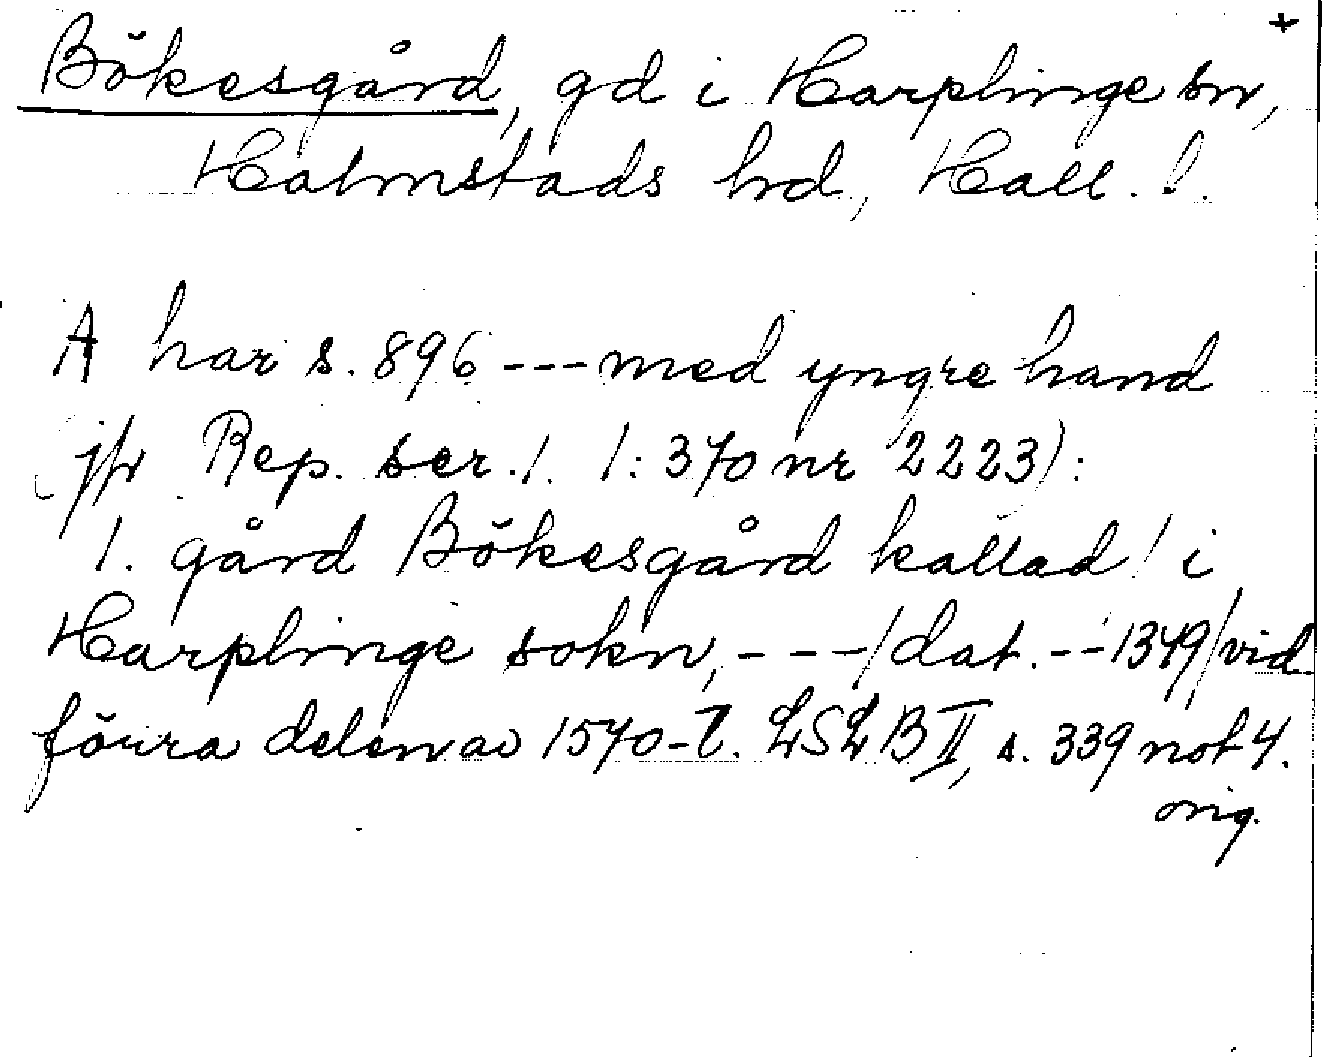 +
Bökesgård, gd i Harplinge sn,
Halmstads hd, Hall. l.
A har s. 896 --- med yngre hand
(jfr Rep. ser. 1. 1: 370 nr 2223):
1. gård Bökesgård kallad! i
Harplinge sokn, --- /dat. -- 1349/ vid
förra delen av 1570-t. LSLB II, s. 339 not 4.
orig.